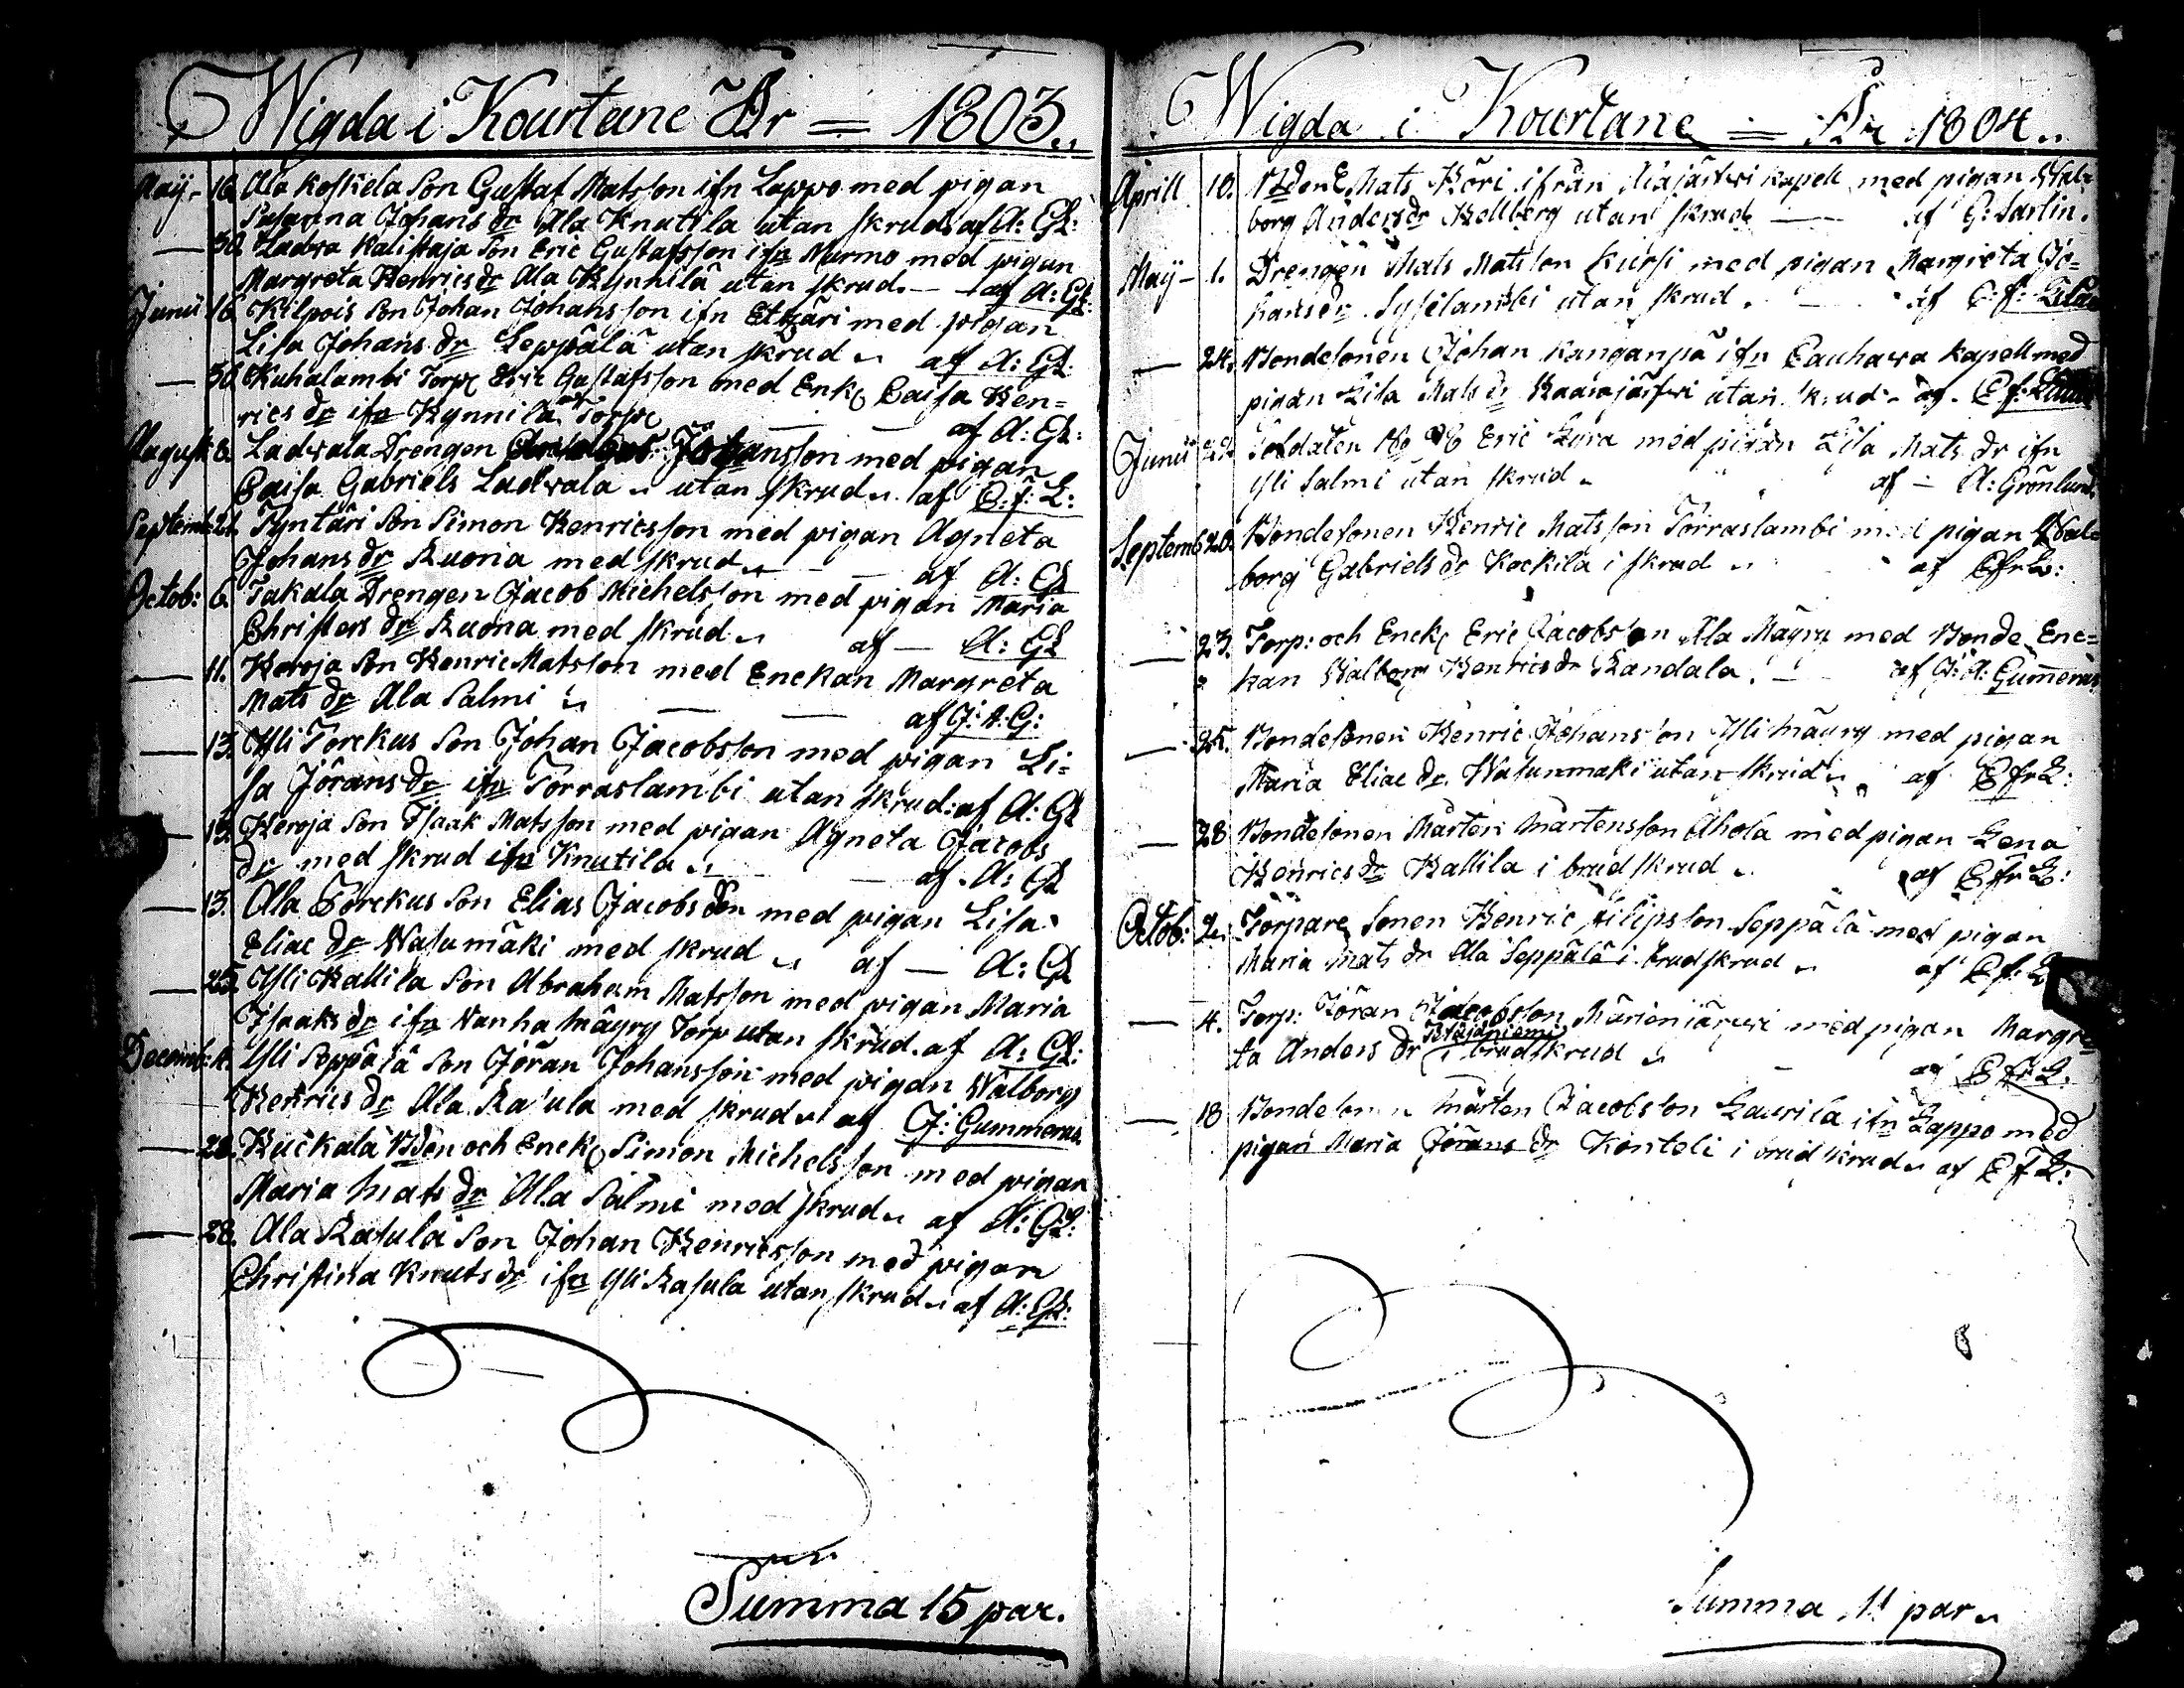 Wigda i Kourtane År = 1803.
Maÿ - 16. Ala Koskela Son Gustaf Matsson ifn Lappo med pigan
Susanna Johans dr Ala Knutila utan skrud af A: GL:
— 30. Ladwa Kalistaja Son Eric Gustafsson ifn Nurmo med pigan
Margreta Henrics dr Ala Kynnilä utan skrud. — af A: GL:
Junii 16. Kilpois Son Johan Johansson ifn Etzäri med pigan
Lisa Johans dr Seppälä utan skrud af A: GL
— 30. Kuhalambi Torp Eric Gustafsson med Enk Caisa Hen=
rics dr ifn Kynnilä Torp — af A: GL:
August: 8. Ladwala Drengen Johansson med pigan
Caisa Gabriels Ladwala utan skrud af C: f: L:
Septemb: 21. Tyntäri Son Simon Henricsson med pigan Agneta
Johans dr Ruona med skrud — af A: GL
Octob: 6. Takala Drengen Jacob Michelsson med pigan Maria
Christers dr Ruona med skrud af — A: GL
— 11. Keroja Son Henric Matsson med Enckan Margreta
Mats dr Ala Salmi — — af J: A: G:
— 13. Yli Torckus Son Johan Jacobsson med pigan Li=
sa Jörans dr ifn Torraslambi utan skrud: af A: GL
— 13. Keroja Son Isaak Matsson med pigan Agneta Jacobs
dr med skrud ifn Knutila — af A: GL
— 13. Ala Torckus Son Elias Jacobs Son med pigan Lisa
Eliae dr Wasumäki med skrud af — A: GL
— 25. Yli Kallila Son Abraham Matsson med pigan Maria
Isaaks dr ifn Wanha Mäyry Torp utan skrud. af A: GL:
Decemb: 4. Yli Seppälä Son Jöran Johansson med pigan Walborg
Henrics dr Ala Rasula med skrud af J: Gummerus.
— 28. Kuckala Bden och Enck Simon Michelsson med pigan
Maria Mats dr Ala Salmi med skrud af A: GL:
— 28. Ala Rasula Son Johan Henricsson med pigan
Christina Knuts dr ifn Yli Rasula utan skrud af A: GL:
Summa 15 par.
Wigda i Kourtane = År 1804.
Aprill 10. Mats Köri ifrån kapell med pigan Wal=
borg Anders dr Hellberg utan skrud — af G: Sarlin.
Maÿ - 1. Drengen Mats Matsson Kursi med pigan Margreta Jo=
hans dr utan skrud. af
— 24. Bondesonen Johan Kanganpä ifn Cauhawa Kapell med
pigan Lisa Mats dr Kaarajärfwi utan skrud af
Junii Soldaten No Eric med pigan Lisa Mats dr ifn
Yli Salmi utan skrud af — A: Grönlund.
Septemb 20. Bondesonen Henric Matsson Torraslambi med pigan Wal=
borg Gabriels dr Kockila i skrud af C fr L:
— 23. Torp: och Enck Eric Jacobsson Ala Mäyry med Bonde Enc=
kan Walborg Henrics dr Randala. — af J: A: Gum̅erus
— 25. Bondesonen Henric Johansson Yli Mäyry med pigan
Maria Eliae dr. Wasunmäki utan skrud af C fr L:
— 28 Bondesonen Mårten Mårtensson Ahola med pigan Lena
Henrics dr Kallila i brudskrud af C fr L:
Octob: 2. Torpare Sonen Henric Filipsson Seppälä med pigan
Maria Mats dr Ala Seppälä i brudskrud af C f: L
— 4. Torp: Jöran Jacobsson Märienjärwi med pigan Margre
ta Anders dr i brudskrud af C fr L.
— 18 Bondesonen Mårten Jacobsson Laurila ifn Lappo med
pigan Maria Jörans dr Konteli i brudskrud af C f L:
Summa 11 par